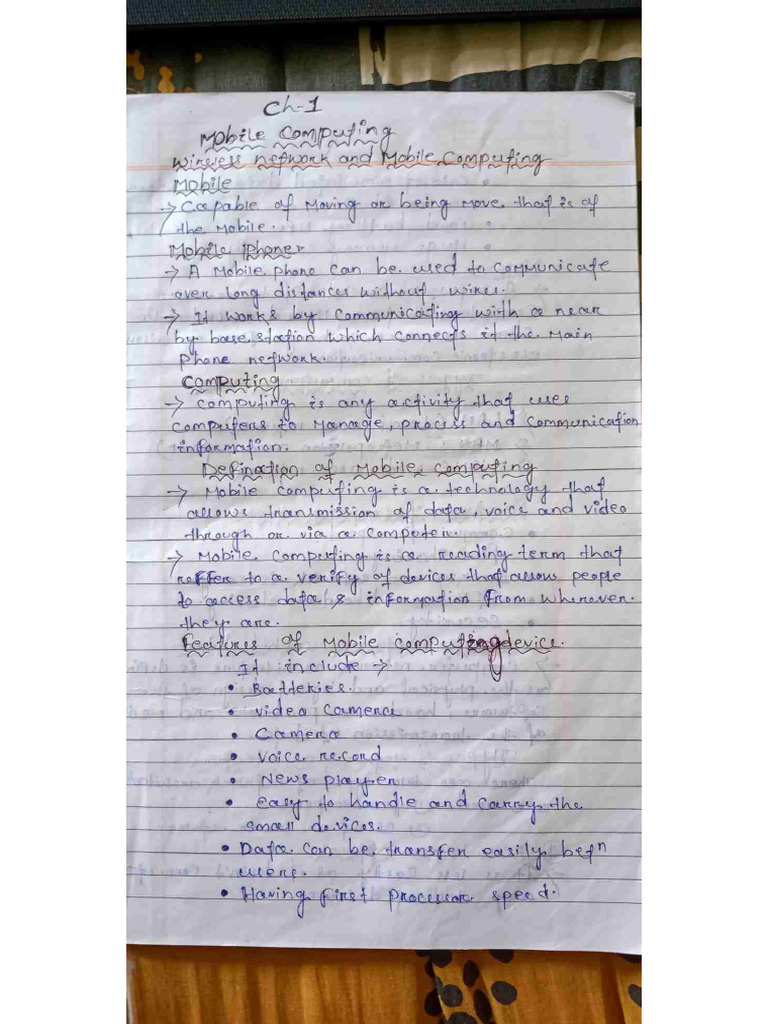 Ch-1
Mobile Computing
Wireless Network and Mobile Computing
Mobile
→ Capable of Moving or being Move. that is of
the Mobile.
Mobile Phoner
→ A Mobile phone can be used to communicate
over long distances without wires.
→ It works by communicating with a near
by base station which connects it the Main
Phone network.
Computing
→ computing is any activity that uses
computers to Manage, process and communication
information.
Defination of Mobile computing
→ Mobile computing is a technology that
allows transmission of data, voice and video
through or via a computer.
→ Mobile computing is a reading term that
reffer to a verify of devices that allows people
to access data & information from wherever
they are.
Features of Mobile computing device.
It include →
• Batteries.
• video Camera
• Camera
• Voice record
• News player
• easy to handle and carry the
small devices.
• Data can be transfer easily betn
users.
• Having first processor speed.